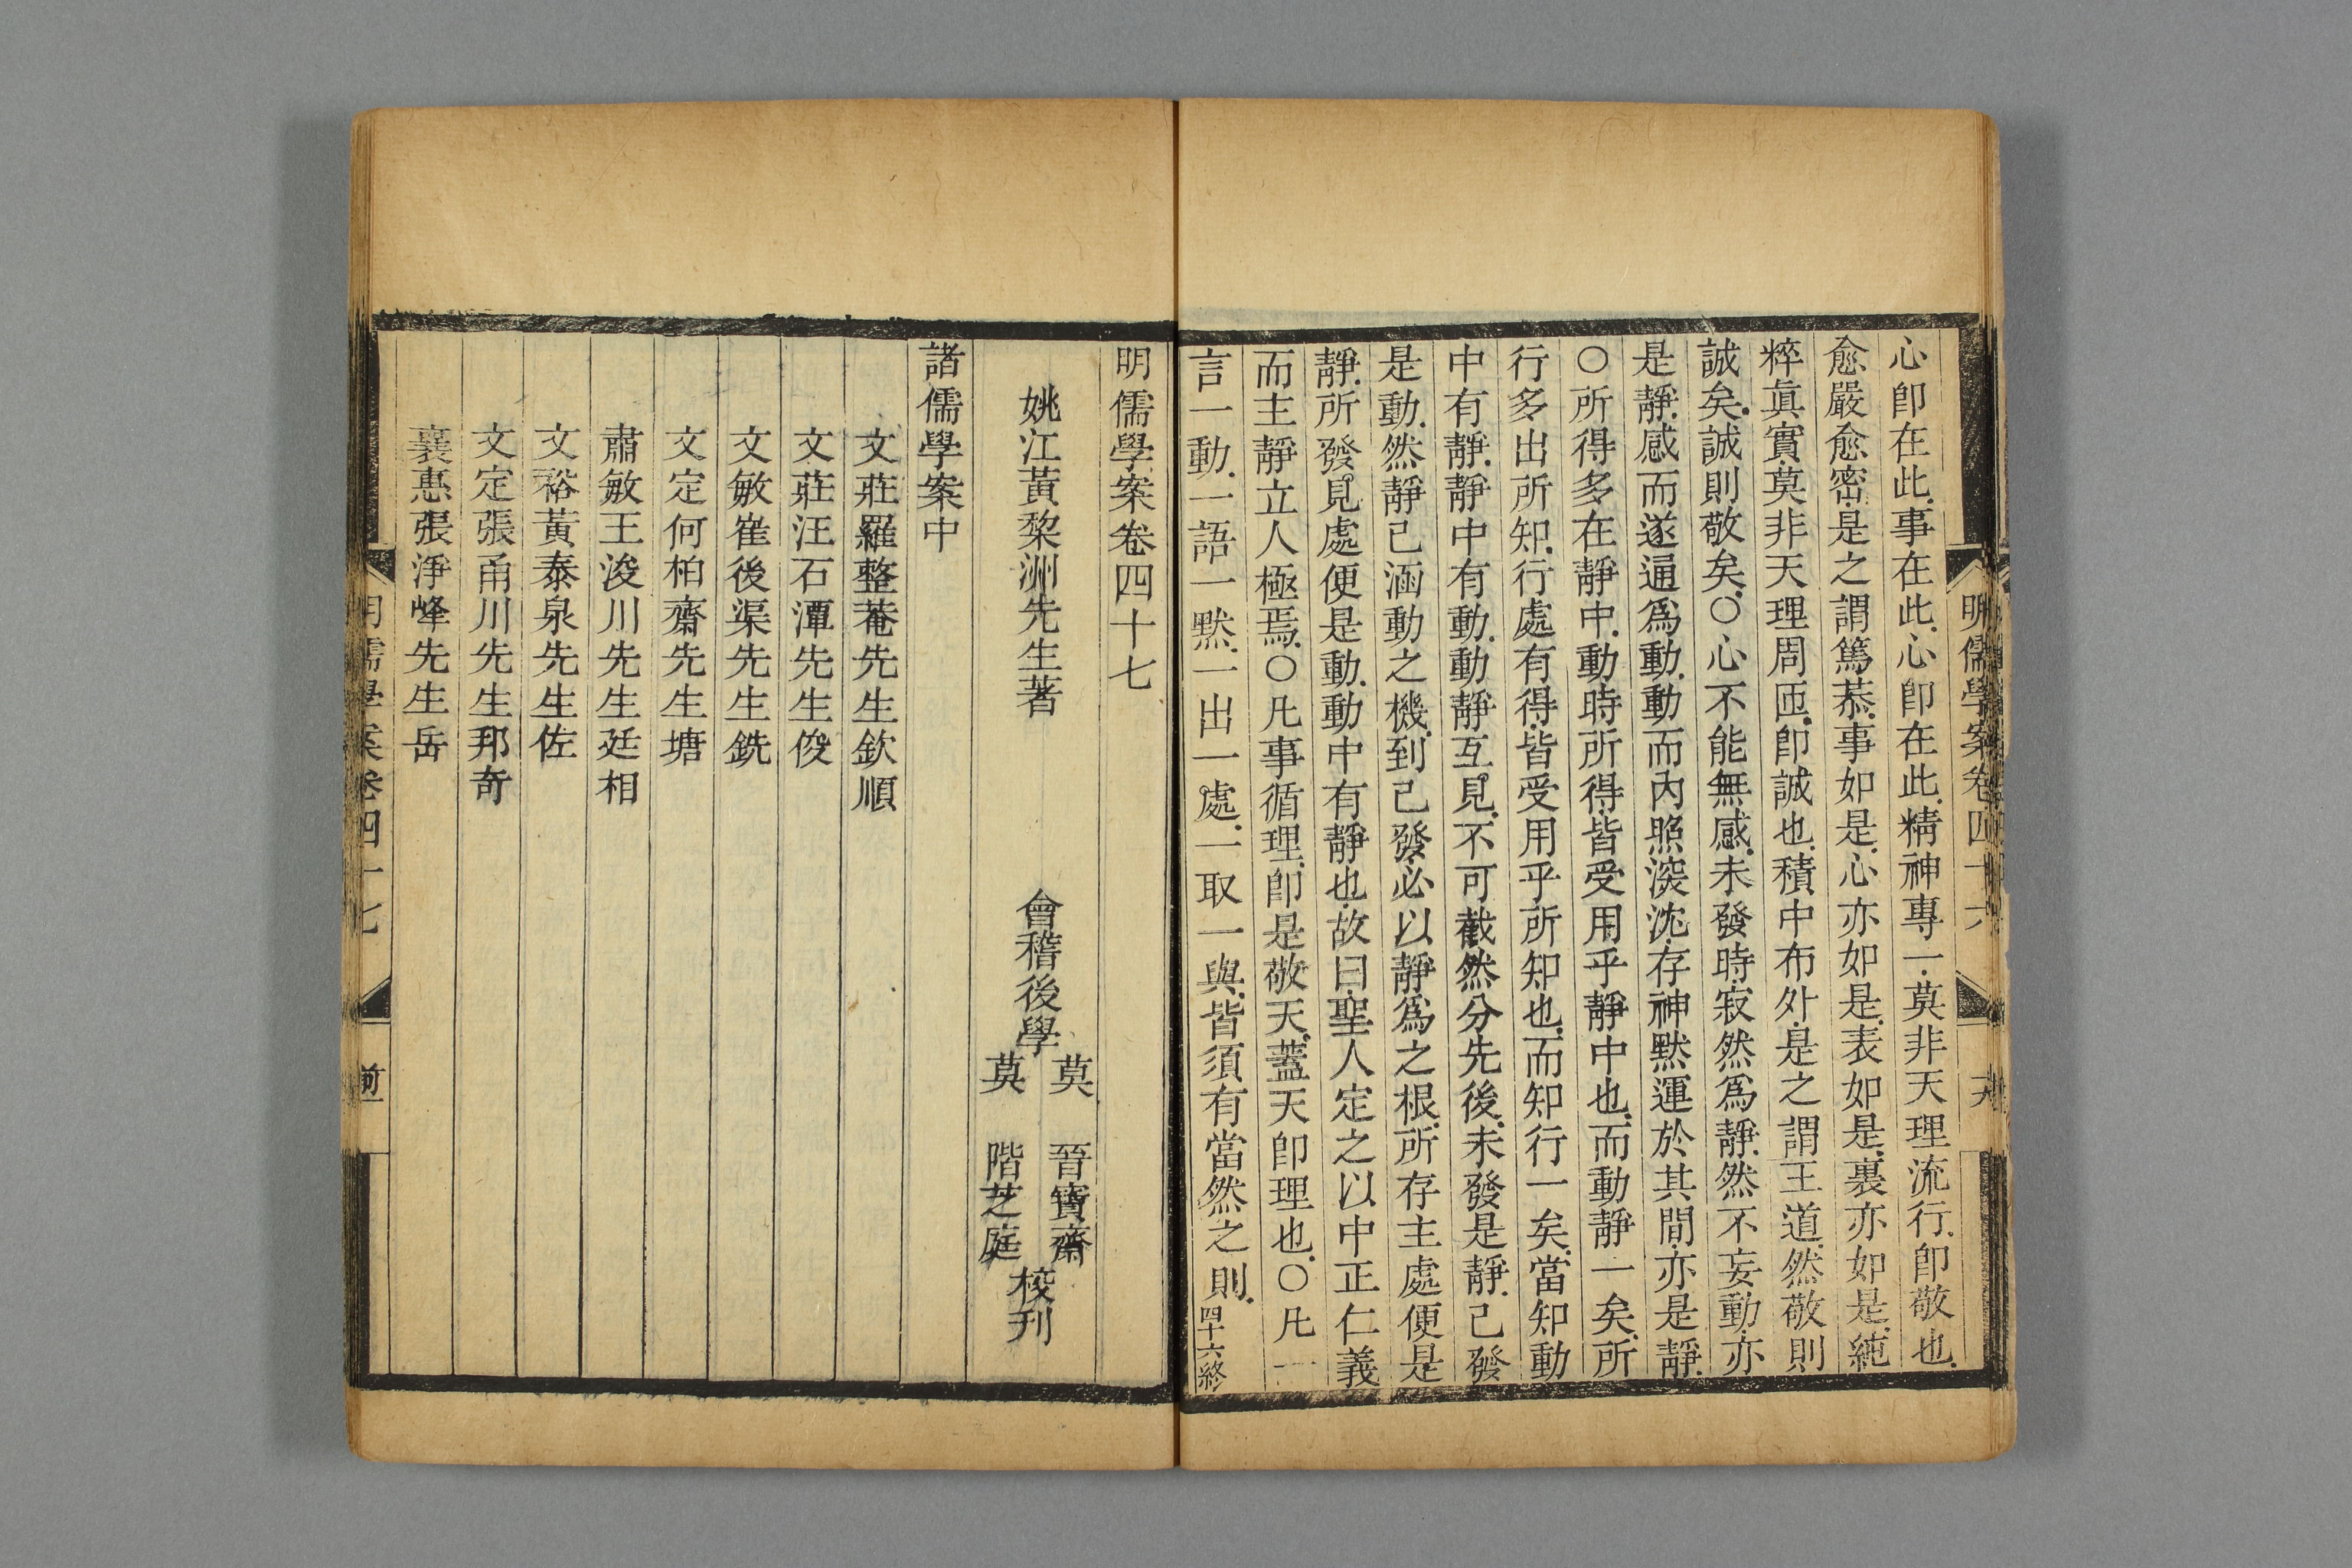 明儒學案卷四十六
心卽在此事在此心卽在此精神專一莫非天理流行卽敬也
愈嚴愈密是之謂篤恭事如是心亦如是表如是裏亦如是純
粹眞實莫非天理周匝卽誠也積中布外是之謂王道然敬則
誠矣誠則敬矣○心不能無感未發時寂然爲靜然不妄動亦
是靜感而遂通爲動動而內照淡沈存神默運於其間亦是靜
○所得多在靜中動時所得皆受用乎靜中也而動靜一矣所
行多出所知行處有得皆受用乎所知也而知行一矣當知動
中有靜靜中有動動靜互見不可截然分先後未發是靜已發
是動然靜已涵動之機到已發必以靜爲之根所存主處便是
靜所發見處便是動動中有靜也故曰聖人定之以中正仁義
而主靜立人極焉○凡事循理卽是敬天蓋天卽理也○凡一
言一動一語一默一出一處一取一與皆須有當然之則四十六終
明儒學案卷四十七
姚江黃棃洲先生著 會稽後學 莫 晉寶齋 莫 階芝庭 校刊
諸儒學案中
文莊羅整菴先生欽順
文莊汪石潭先生俊
文敏崔後渠先生銑
文定何柏齋先生塘
肅敏王浚川先生廷相
文裕黃泰泉先生佐
文定張甬川先生邦奇
襄惠張淨峰先生岳
明儒學案卷四十七 前一